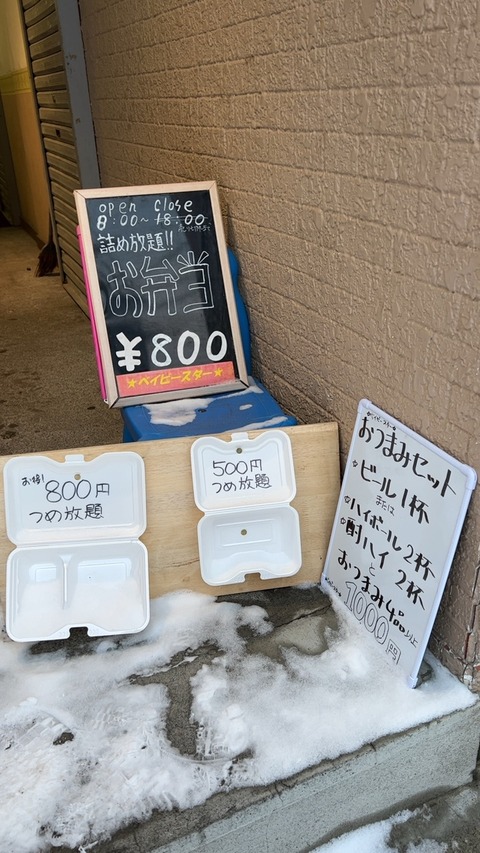 open close
8:00~18:00
詰め放題!!
お弁当
¥800
★ベイビースター★
お得!
800円
つめ放題
500円
つめ放題
おつまみセット
ビール1杯
または
ハイボール2杯
酎ハイ 2杯
と
おつまみ4品以上
1000円